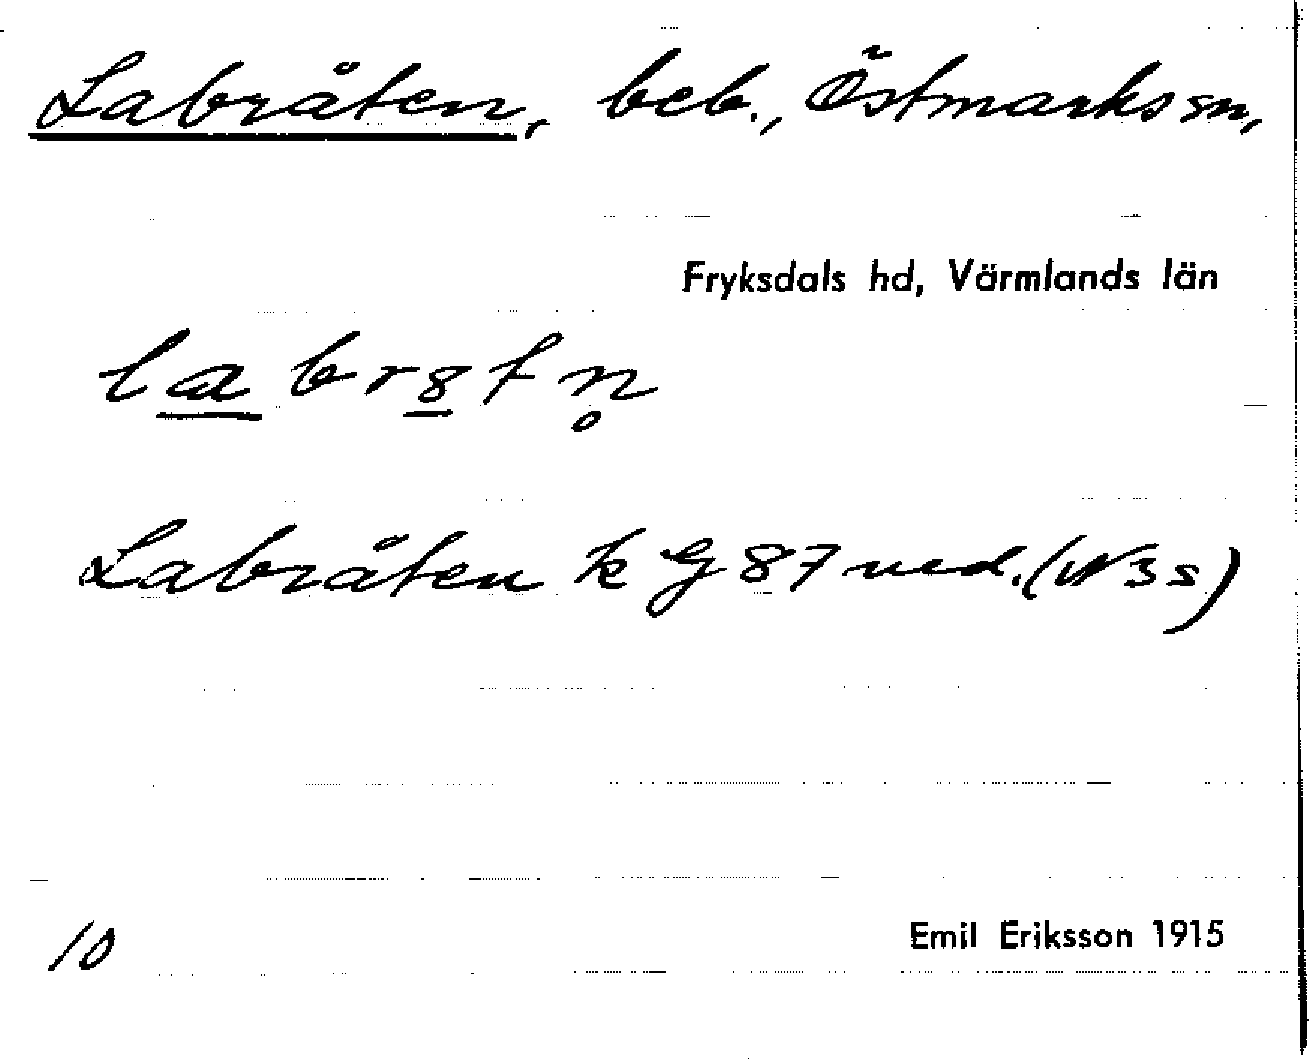 Labråten, beb., Östmarks sn,
Fryksdals hd, Värmlands län
l a b r 8 t n̥
Labråten k G 87 ned. (N 3 s)
10
Emil Eriksson 1915